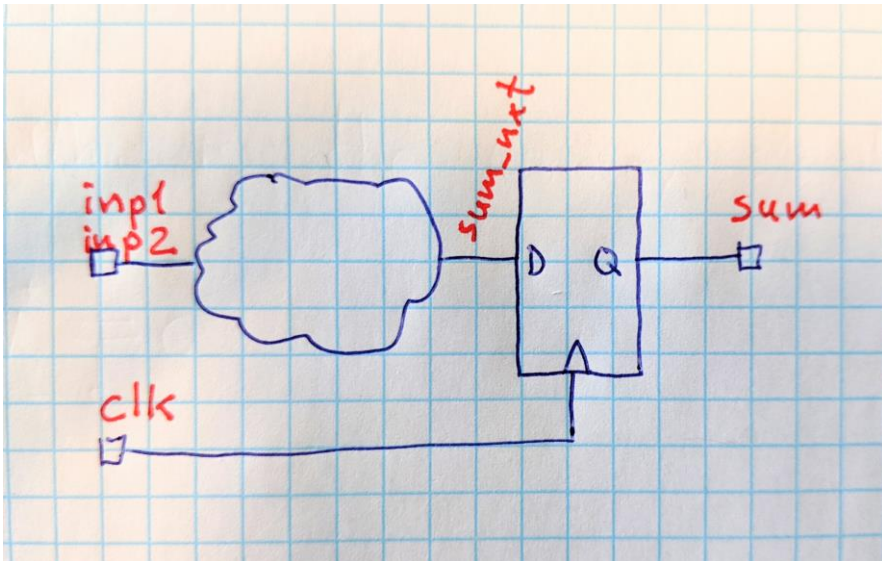 inp1
inp2
sum_nxt
D
Q
sum
clk